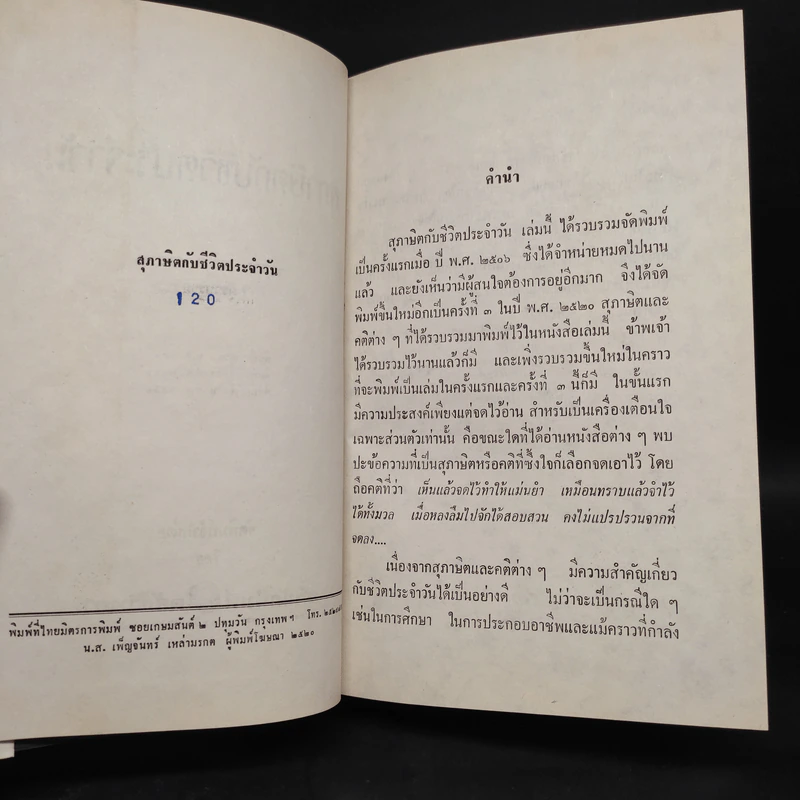 สุภาษิตกับชีวิตประจำวัน
120
พิมพ์ที่ไทยมิตรการพิมพ์ ซอยเกษมสันต์ ๒ ปทุมวัน กรุงเทพฯ โทร.
น.ส. เพ็ญจันทร์ เหล่ามรกต ผู้พิมพ์โฆษณา ๒๕๒๐
คำนำ
สุภาษิตกับชีวิตประจำวัน เล่มนี้ ได้รวบรวมจัดพิมพ์
เป็นครั้งแรกเมื่อ ปี พ.ศ. ๒๕๐๖ ซึ่งได้จำหน่ายหมดไปนาน
แล้ว และยังเห็นว่ามีผู้สนใจต้องการอยู่อีกมาก จึงได้จัด
พิมพ์ขึ้นใหม่อีกเป็นครั้งที่ ๓ ในปี พ.ศ. ๒๕๒๐ สุภาษิตและ
คติต่าง ๆ ที่ได้รวบรวมมาพิมพ์ไว้ในหนังสือเล่มนี้ ข้าพเจ้า
ได้รวบรวมไว้นานแล้วก็มี และเพิ่งรวบรวมขึ้นใหม่ในคราว
ที่จะพิมพ์เป็นเล่มในครั้งแรกและครั้งที่ ๓ นี้ก็มี ในขั้นแรก
มีความประสงค์เพียงแต่จดไว้อ่าน สำหรับเป็นเครื่องเตือนใจ
เฉพาะส่วนตัวเท่านั้น คือขณะใดที่ได้อ่านหนังสือต่าง ๆ พบ
ปะข้อความที่เป็นสุภาษิตหรือคติที่ซึ้งใจก็เลือกจดเอาไว้ โดย
ถือคติที่ว่า เห็นแล้วจดไว้ทำให้แม่นยำ เหมือนทราบแล้วจำไว้
ได้ทั้งมวล เมื่อหลงลืมไปจักได้สอบสวน คงไม่แปรปรวนจากที่
จดลง....
เนื่องจากสุภาษิตและคติต่าง ๆ มีความสำคัญเกี่ยว
กับชีวิตประจำวันได้เป็นอย่างดี ไม่ว่าจะเป็นกรณีใด ๆ
เช่นในการศึกษา ในการประกอบอาชีพและแม้คราวที่กำลัง